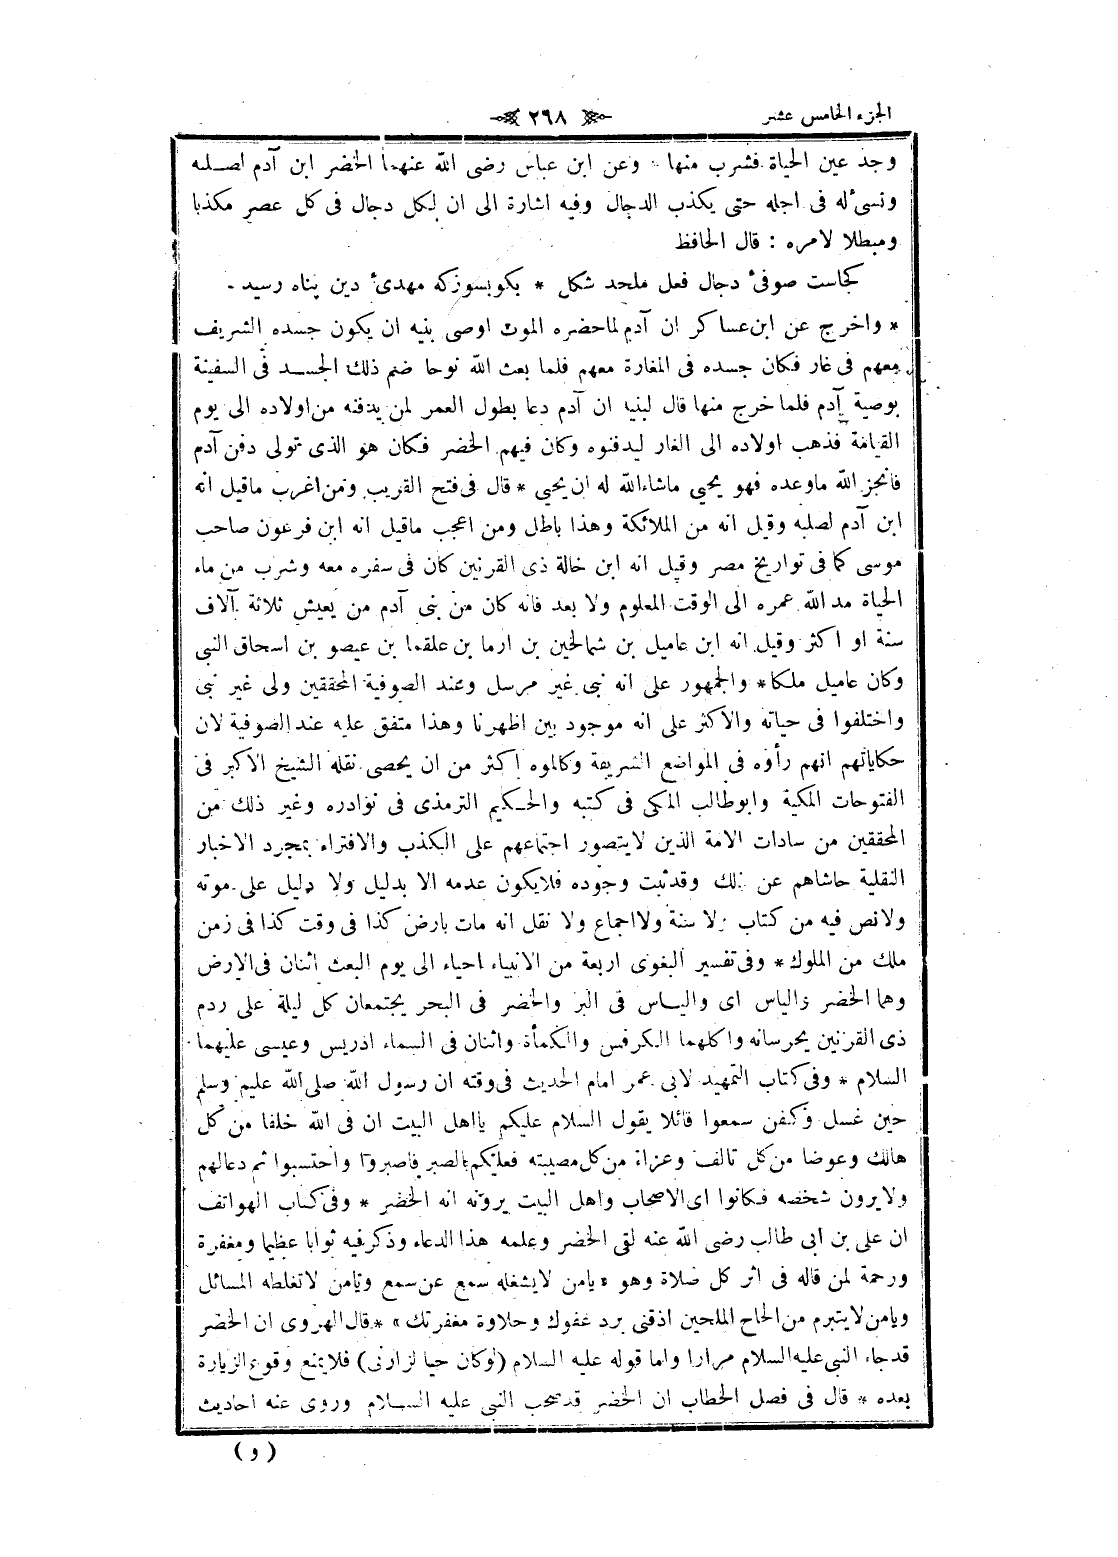 الجزء الخامس عشر
٢٦٨
وجد عين الحياة فشرب منها * وعن ابن عباس رضى الله عنهما الخضر ابن آدم لصلبه
ونسئ له فى اجله حتى يكذب الدجال وفيه اشارة الى ان لكل دجال فى كل عصر مكذبا
ومبطلا لامره : قال الحافظ
كجاست صوفئ دجال فعل ملحد شكل * بكو بسوزكه مهدئ دين پناه رسيد
* واخرج عن ابن عساكر ان آدم لما حضره الموت اوصى بنيه ان يكون جسده الشريف
معهم فى غار فكان جسده فى المغارة معهم فلما بعث الله نوحا ضم ذلك الجسد فى السفينة
بوصية آدم فلما خرج منها قال لبنيه ان آدم دعا بطول العمر لمن يدفنه من اولاده الى يوم
القيامة فذهب اولاده الى الغار ليدفنوه وكان فيهم الخضر فكان هو الذى تولى دفن آدم
فانجز الله ما وعده فهو يحيي ماشاءالله له ان يحيي * قال فى فتح القريب ومن اغرب ماقيل انه
ابن آدم لصلبه وقيل انه من الملائكة وهذا باطل ومن اعجب ماقيل انه ابن فرعون صاحب
موسى كما فى تواريخ مصر وقيل انه ابن خالة ذى القرنين كان فى سفره معه وشرب من ماء
الحياة مد الله عمره الى الوقت المعلوم ولا بعد فانه كان من بنى آدم من يعيش ثلاثة آلاف
سنة او اكثر وقيل انه ابن عاميل بن شمالخين بن ارما بن علقما بن عيصو بن اسحاق النبى
وكان عاميل ملكا * والجمهور على انه نبى غير مرسل وعند الصوفية المحققين ولى غير نبى
واختلفوا فى حياته والاكثر على انه موجود بين اظهرنا وهذا متفق عليه عند الصوفية لان
حكاياتهم انهم رأوه فى المواضع الشريفة وكالموه اكثر من ان يحصى نقله الشيخ الاكبر فى
الفتوحات المكية وابوطالب المكى فى كتبه والحكيم الترمذى فى نوادره وغير ذلك من
المحققين من سادات الامة الذين لايتصور اجتماعهم على الكذب والافتراء بمجرد الاخبار
النقلية حاشاهم عن ذلك وقدثبت وجوده فلايكون عدمه الا بدليل ولا دليل على موته
ولانص فيه من كتاب ولا سنة ولااجماع ولا نقل انه مات بارض كذا فى وقت كذا فى زمن
ملك من الملوك * وفى تفسير البغوى اربعة من الانبياء احياء الى يوم البعث اثنان فى الارض
وهما الخضر والياس اى والياس فى البر والخضر فى البحر يجتمعان كل ليلة على ردم
ذى القرنين يحرسانه واكلهما الكرفس والكمأة واثنان فى السماء ادريس وعيسى عليهما
السلام * وفى كتاب التمهيد لابى عمر امام الحديث فى وقته ان رسول الله صلى الله عليه وسلم
حين غسل وكفن سمعوا قائلا يقول السلام عليكم يااهل البيت ان فى الله خلفا من كل
هالك وعوضا من كل تالف وعزاء من كل مصيبته فعليكم بالصبر فاصبروا واحتسبوا ثم دعالهم
ولايرون شخصه فكانوا اى الاصحاب واهل البيت يرونه انه الخضر * وفى كتاب الهواتف
ان على بن ابى طالب رضى الله عنه لقى الخضر وعلمه هذا الدعاء وذكر فيه ثوابا عظيما ومغفرة
ورحمة لمن قاله فى اثر كل صلاة وهو « يامن لايشغله سمع عن سمع ويامن لاتغلطه المسائل
ويامن لايتبرم من الحاح الملحين اذقنى برد عفوك وحلاوة مغفرتك » * قال الهروى ان الخضر
قدجاء النبى عليه السلام مرارا واما قوله عليه السلام (لوكان حيا لزارنى) فلايمنع وقوع الزيارة
بعده * قال فى فصل الخطاب ان الخضر قدصحب النبى عليه السلام وروى عنه احاديث
( و )